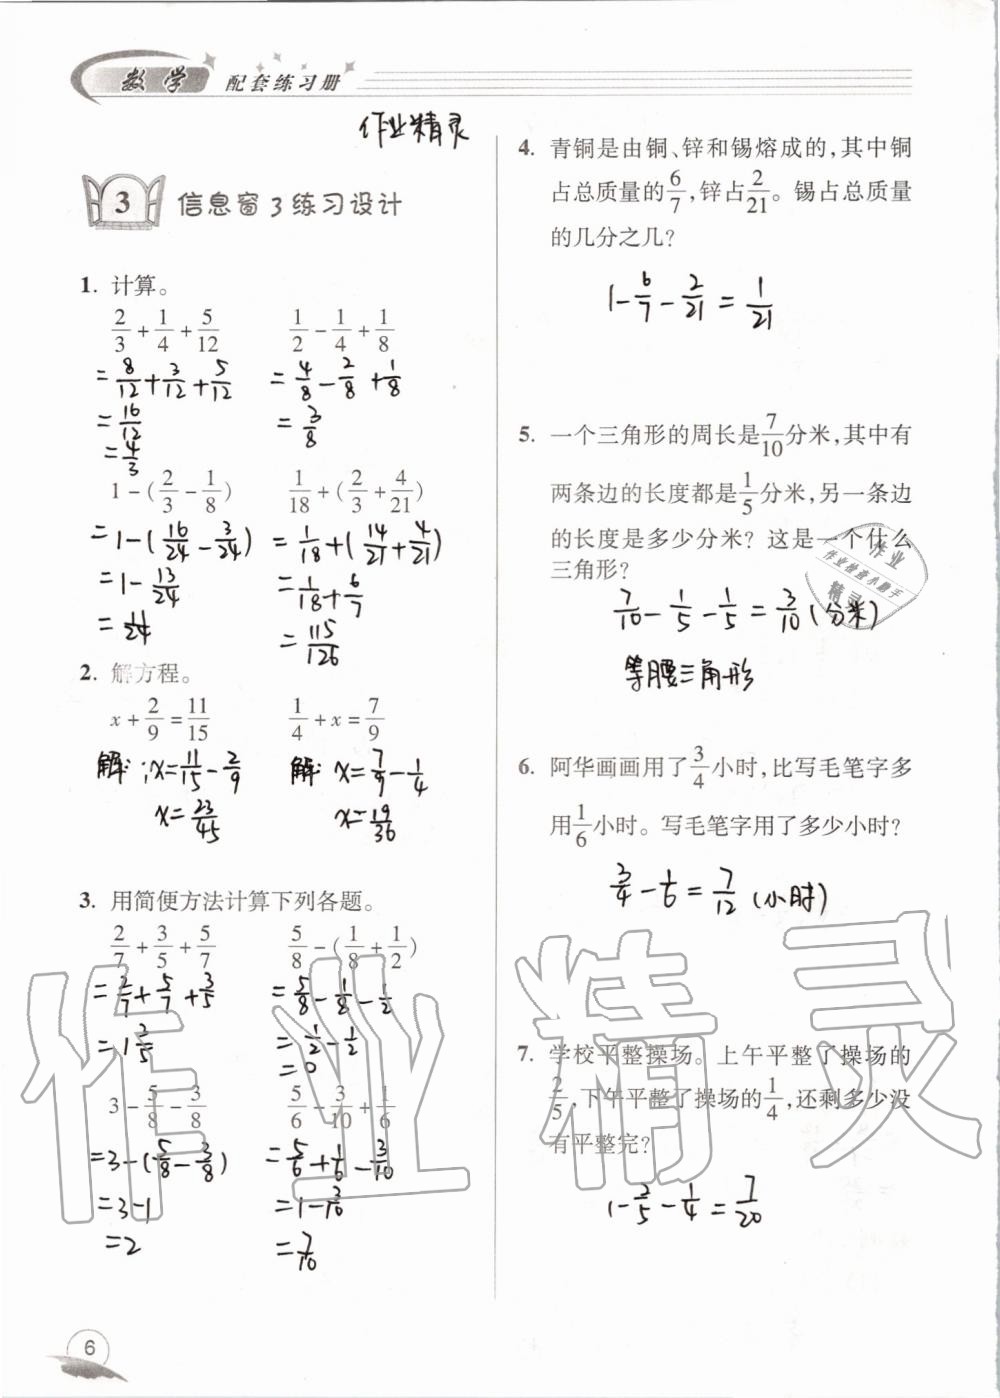 数学 配套练习册
作业精灵
3 信息窗3练习设计
1. 计算。
2/3+1/4+5/12 1/2-1/4+1/8
=8/12+3/12+5/12 =4/8-2/8+1/8
=16/12 =3/8
=4/3
1-(2/3-1/8) 1/18+(2/3+4/21)
=1-(16/24-3/24) =1/18+(14/21+4/21)
=1-13/24 =1/18+6/7
=11/24 =115/126
2. 解方程。
x+2/9=11/15 1/4+x=7/9
解:x=11/15-2/9 解 x=7/9-1/4
x=23/45 x=19/36
3. 用简便方法计算下列各题。
2/7+3/5+5/7 5/8-(1/8+1/2)
=2/7+5/7+3/5 =5/8-1/8-1/2
=1 3/5 =1/2-1/2
=0
3-5/8-3/8 5/6-3/10+1/6
=3-(5/8-3/8) =5/6+1/6-3/10
=3-1 =1-3/10
=2 =7/10
4. 青铜是由铜、锌和锡熔成的,其中铜
占总质量的6/7,锌占2/21。锡占总质量
的几分之几?
1-6/7-2/21=1/21
5. 一个三角形的周长是7/10分米,其中有
两条边的长度都是1/5分米,另一条边
的长度是多少分米?这是一个什么
三角形?
7/10-1/5-1/5=3/10(分米)
等腰三角形
6. 阿华画画用了3/4小时,比写毛笔字多
用1/6小时。写毛笔字用了多少小时?
3/4-1/6=7/12(小时)
7. 学校平整操场。上午平整了操场的
2/5,下午平整了操场的1/4,还剩多少没
有平整完?
1-2/5-1/4=7/20
作业
作业检查小助手
精灵
作业精灵
6